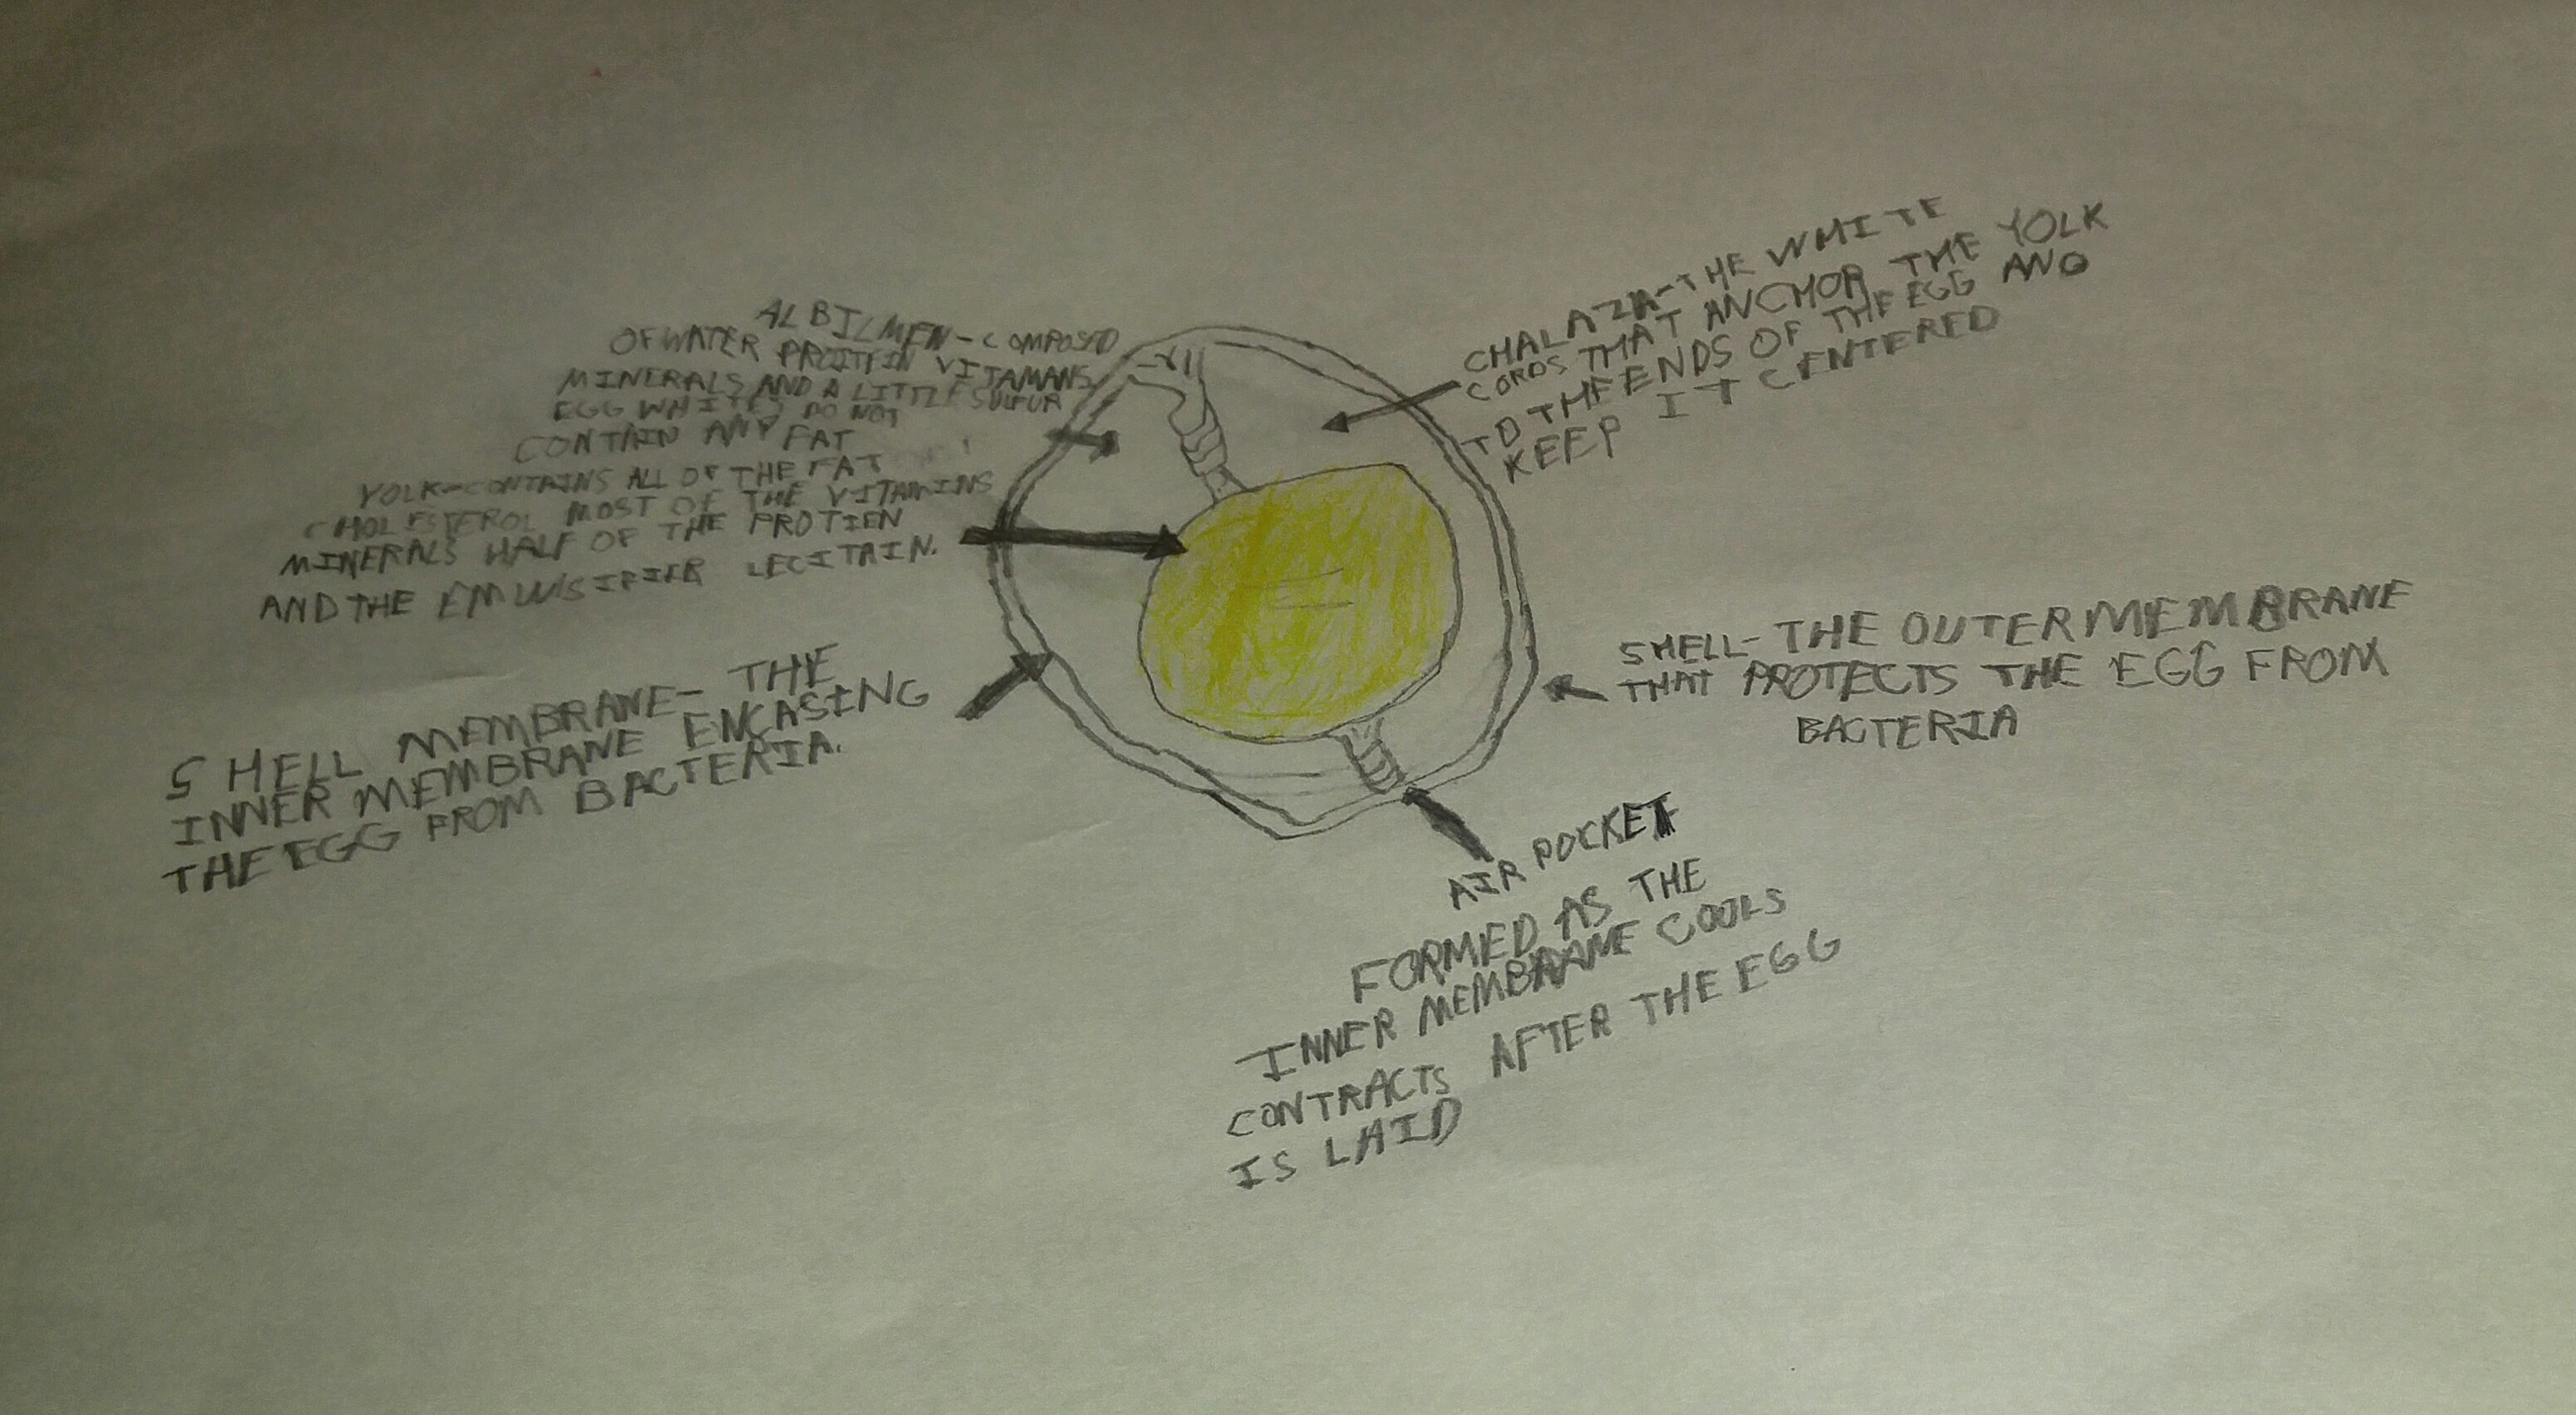 ALBUMEN-COMPOSED
OF WATER PROTEIN VITAMANS
MINERALS AND A LITTLE SULFUR
EGG WHITES DO NOT
CONTAIN ANY FAT
YOLK-CONTAINS ALL OF THE FAT
CHOLESTEROL MOST OF THE VITAMINS
MINERALS HALF OF THE PROTIEN
AND THE EMULSIFIER LECITAIN.
SHELL MEMBRANE- THE
INNER MEMBRANE ENCASING
THE EGG FROM BACTERIA.
CHALAZA-THE WHITE
CORDS THAT ANCHOR THE YOLK
TO THE ENDS OF THE EGG AND
KEEP IT CENTERED
SHELL-THE OUTER MEMBRANE
THAT PROTECTS THE EGG FROM
BACTERIA
AIR POCKET
FORMED AS THE
INNER MEMBRANE COOLS
CONTRACTS AFTER THE EGG
IS LAID